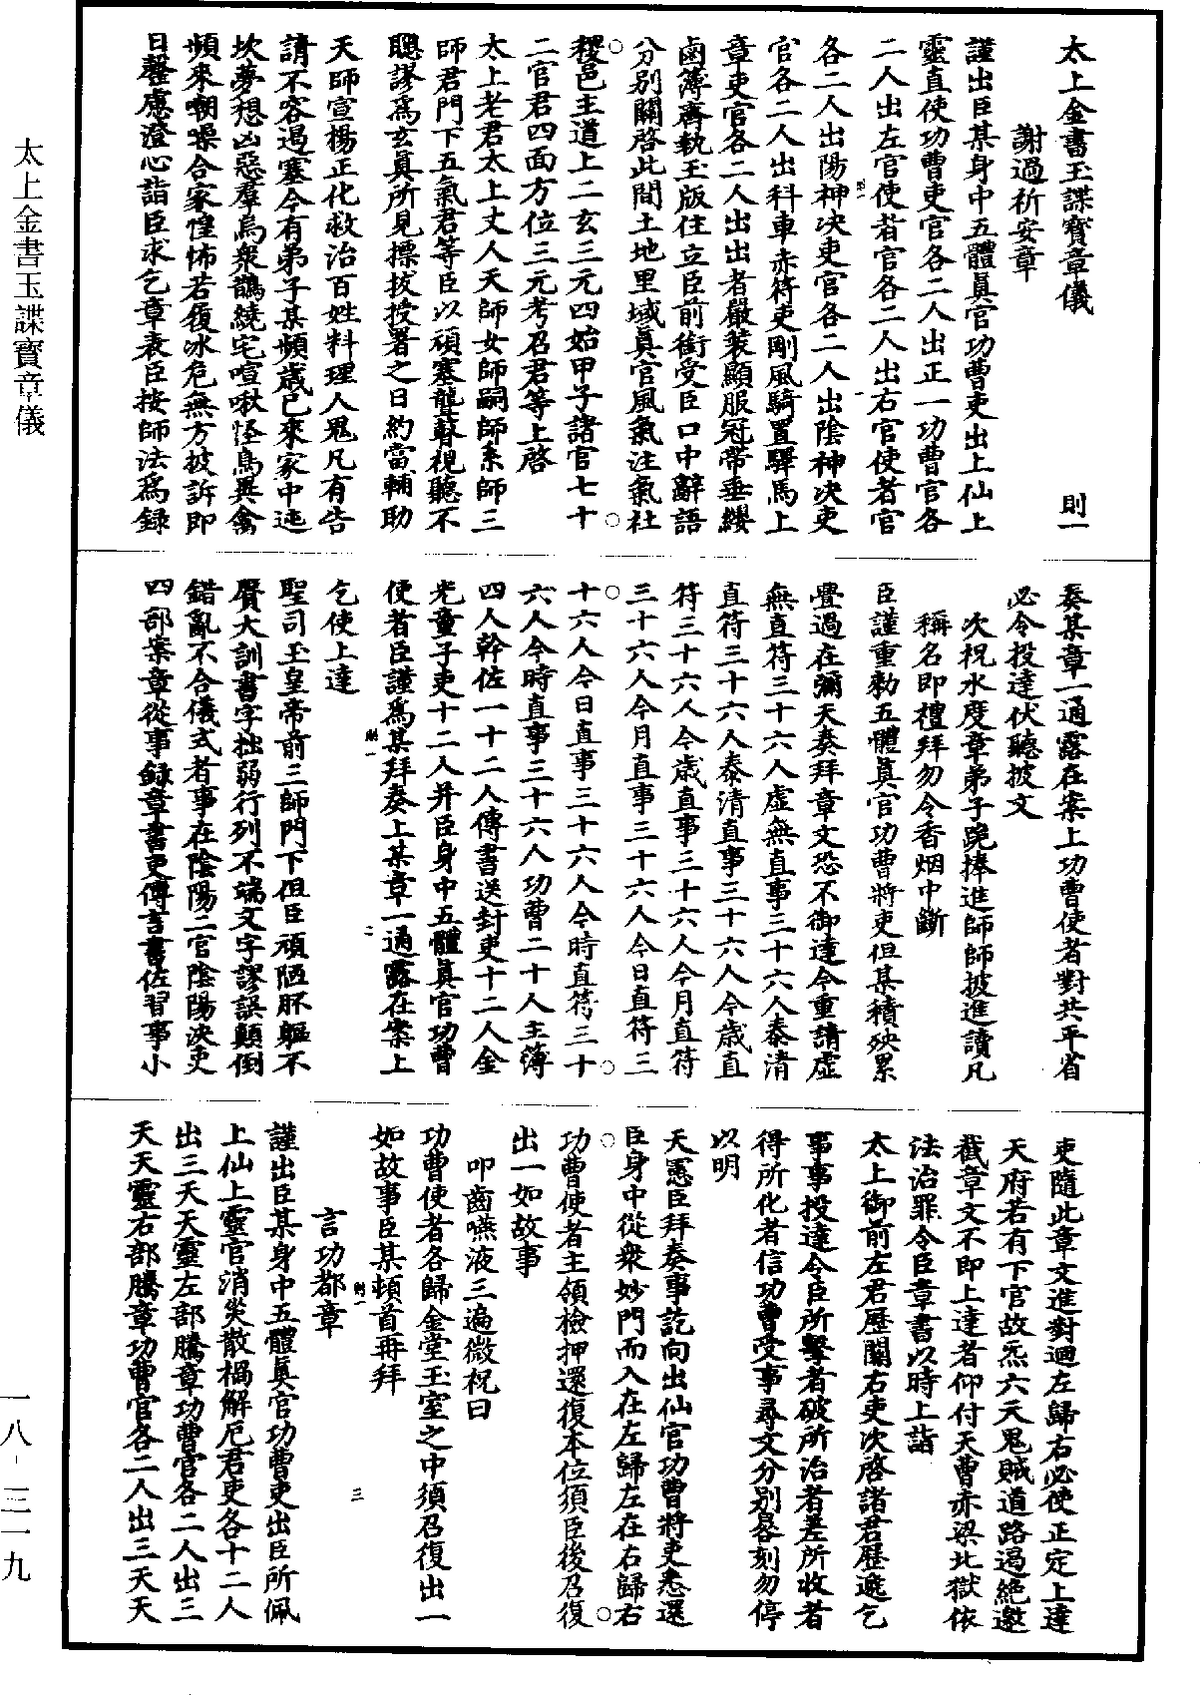 太上金書玉諜寶章儀
則一
謝過祈安章
謹出臣某身中五體真官功曹吏出上仙上
靈直使功曹吏官各二人出正一功曹官各
二人出左官使者官各二人出右官使者官
各二人出陽神決吏官各二人出陰神決吏
官各二人出科車赤符吏剛風騎置驛馬上
章吏官各二人出出者嚴裝顯服冠帶垂纓
鹵簿齊執玉版住立臣前銜受臣口中辭語
分別關啓此間土地里域真官風氣注氣社
稷邑主道上二玄三元四始甲子諸官七十
二官君四面方位三元考召君等上啓
太上老君太上丈人天師女師嗣師系師三
師君門下五氣君等臣以頑塞聾瞽視聽不
聰謬為玄真所見摽拔授署之日約當輔助
天師宣楊正化救治百姓料理人鬼凡有告
請不容遏塞今有弟子某頻歲已來家中迍
坎夢想凶惡羣烏衆鵲繞宅喧啾怪鳥異禽
頻來嘲噪合家惶怖若履冰危無方披訴即
日罄慮澄心詣臣求乞章表臣按師法為錄
奏某章一通露在案上功曹使者對共平省
必令投達伏聽披文
次祝水度章弟子跪捧進師師披進讀凡
稱名即禮拜勿令香烟中斷
臣謹重勑五體真官功曹將吏但某積殃累
舋過在彌天奏拜章文恐不御達今重請虛
無直符三十六人虛無直事三十六人泰清
直符三十六人泰清直事三十六人今歲直
符三十六人今歲直事三十六人今月直符
三十六人今月直事三十六人今日直符三
十六人今日直事三十六人今時直符三十
六人今時直事三十六人功曹二十人主簿
四人幹佐一十二人傳書送封吏十二人金
光童子吏十二人并臣身中五體真官功曹
使者臣謹為某拜奏上某章一通露在案上
則一
二
乞使上達
聖司玉皇帝前三師門下但臣頑陋胚軀不
贋大訓書字拙弱行列不端文字謬誤顛倒
錯亂不合儀式者事在陰陽二官陰陽決吏
四部案章從事錄章書吏傳言書佐習事小
吏隨此章文進對迴左歸右必使正定上達
天府若有下官故炁六天鬼賊道路遏絕邀
截章文不即上達者仰付天曹赤梁北獄依
法治罪令臣章書以時上詣
太上御前左君歷關右吏次啓諸君歷遞乞
事事投達令臣所擊者破所治者差所收者
得所化者信功曹受事尋文分別晷刻勿停
以明
天憲臣拜奏事訖向出仙官功曹將吏悉還
臣身中從衆妙門而入在左歸左在右歸右
功曹使者主領檢押還復本位須臣後召復
出一如故事
叩齒嚥液三遍微祝曰
功曹使者各歸金堂玉室之中須召復出一
如故事臣某頓首再拜
則一
三
言功都章
謹出臣某身中五體真官功曹吏出臣所佩
上仙上靈官消災散禍解厄君吏各十二人
出三天天靈左部騰章功曹官各二人出三
天天靈右部騰章功曹官各二人出三天天
太上金書玉諜寶章儀
一八-三一九